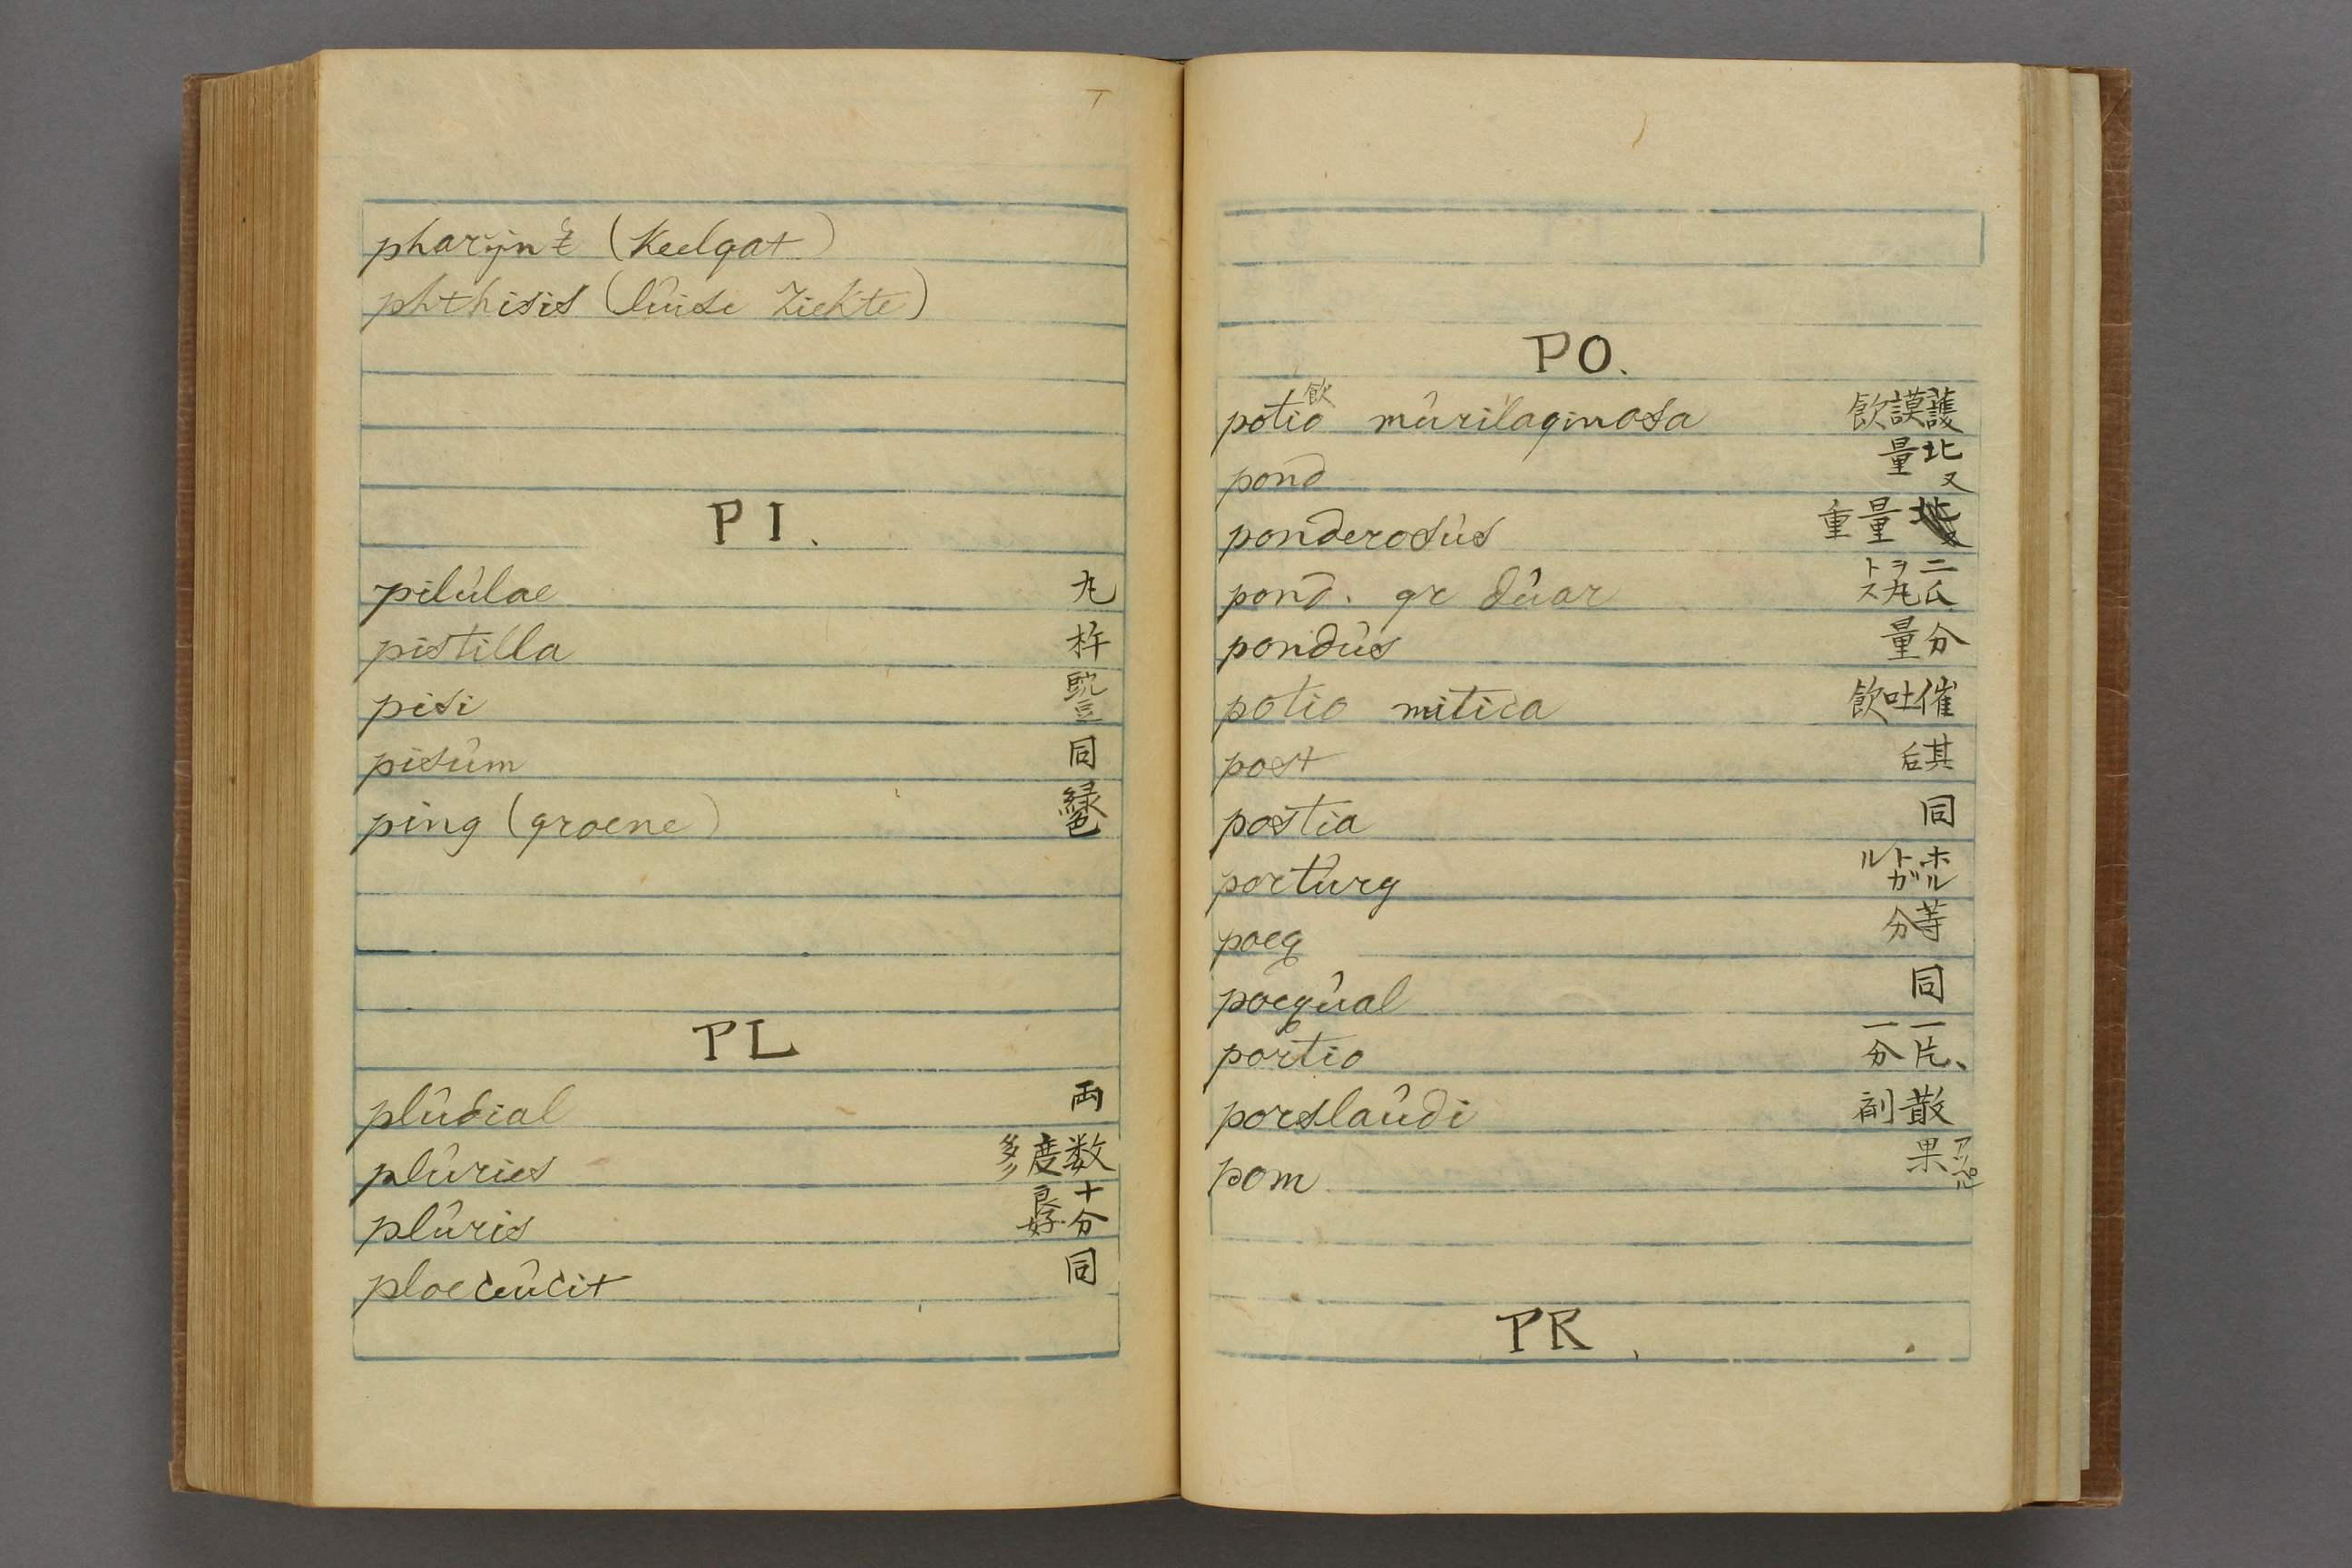 pharijnx (Keelgat)
phthisis (lûise Ziekte)
PI.
pilûlae 丸
pistilla 杵
pisi 豌豆
pisûm 同
ping (groene) 緑色
PL
plûdial 両
plûries 数度 多ノ
plûris 十分 良好
ploecûcit 同
PO.
飲
potio mûrilaginosa 護謨飲
pond 北量 又
ponderosûs 量重
pond. gr dûar 二瓜ヲ丸トス
pondûs 分量
potio mitica 催吐飲
post 其后
postia 同
portûrg ホルトガル
poeq 等分
poeqûal 同
portio 一片、一分
porslaûdi 散剤
pom アッペル 果
PR.